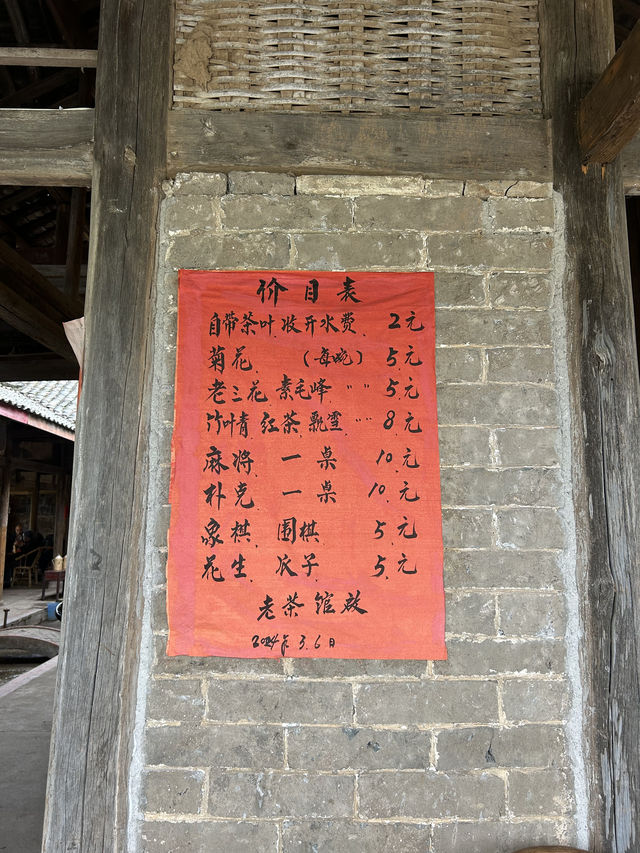 价目表
自带茶叶.收开水费. 2元
菊花. （每碗） 5.元
老三花 素毛峰 " " 5.元
竹叶青 红茶.飘雪. " " 8.元
麻将. 一桌 10.元
朴克. 一桌 10.元
象棋. 围棋. 5元
花生. 瓜子. 5.元
老茶馆啟
2024年3.6日